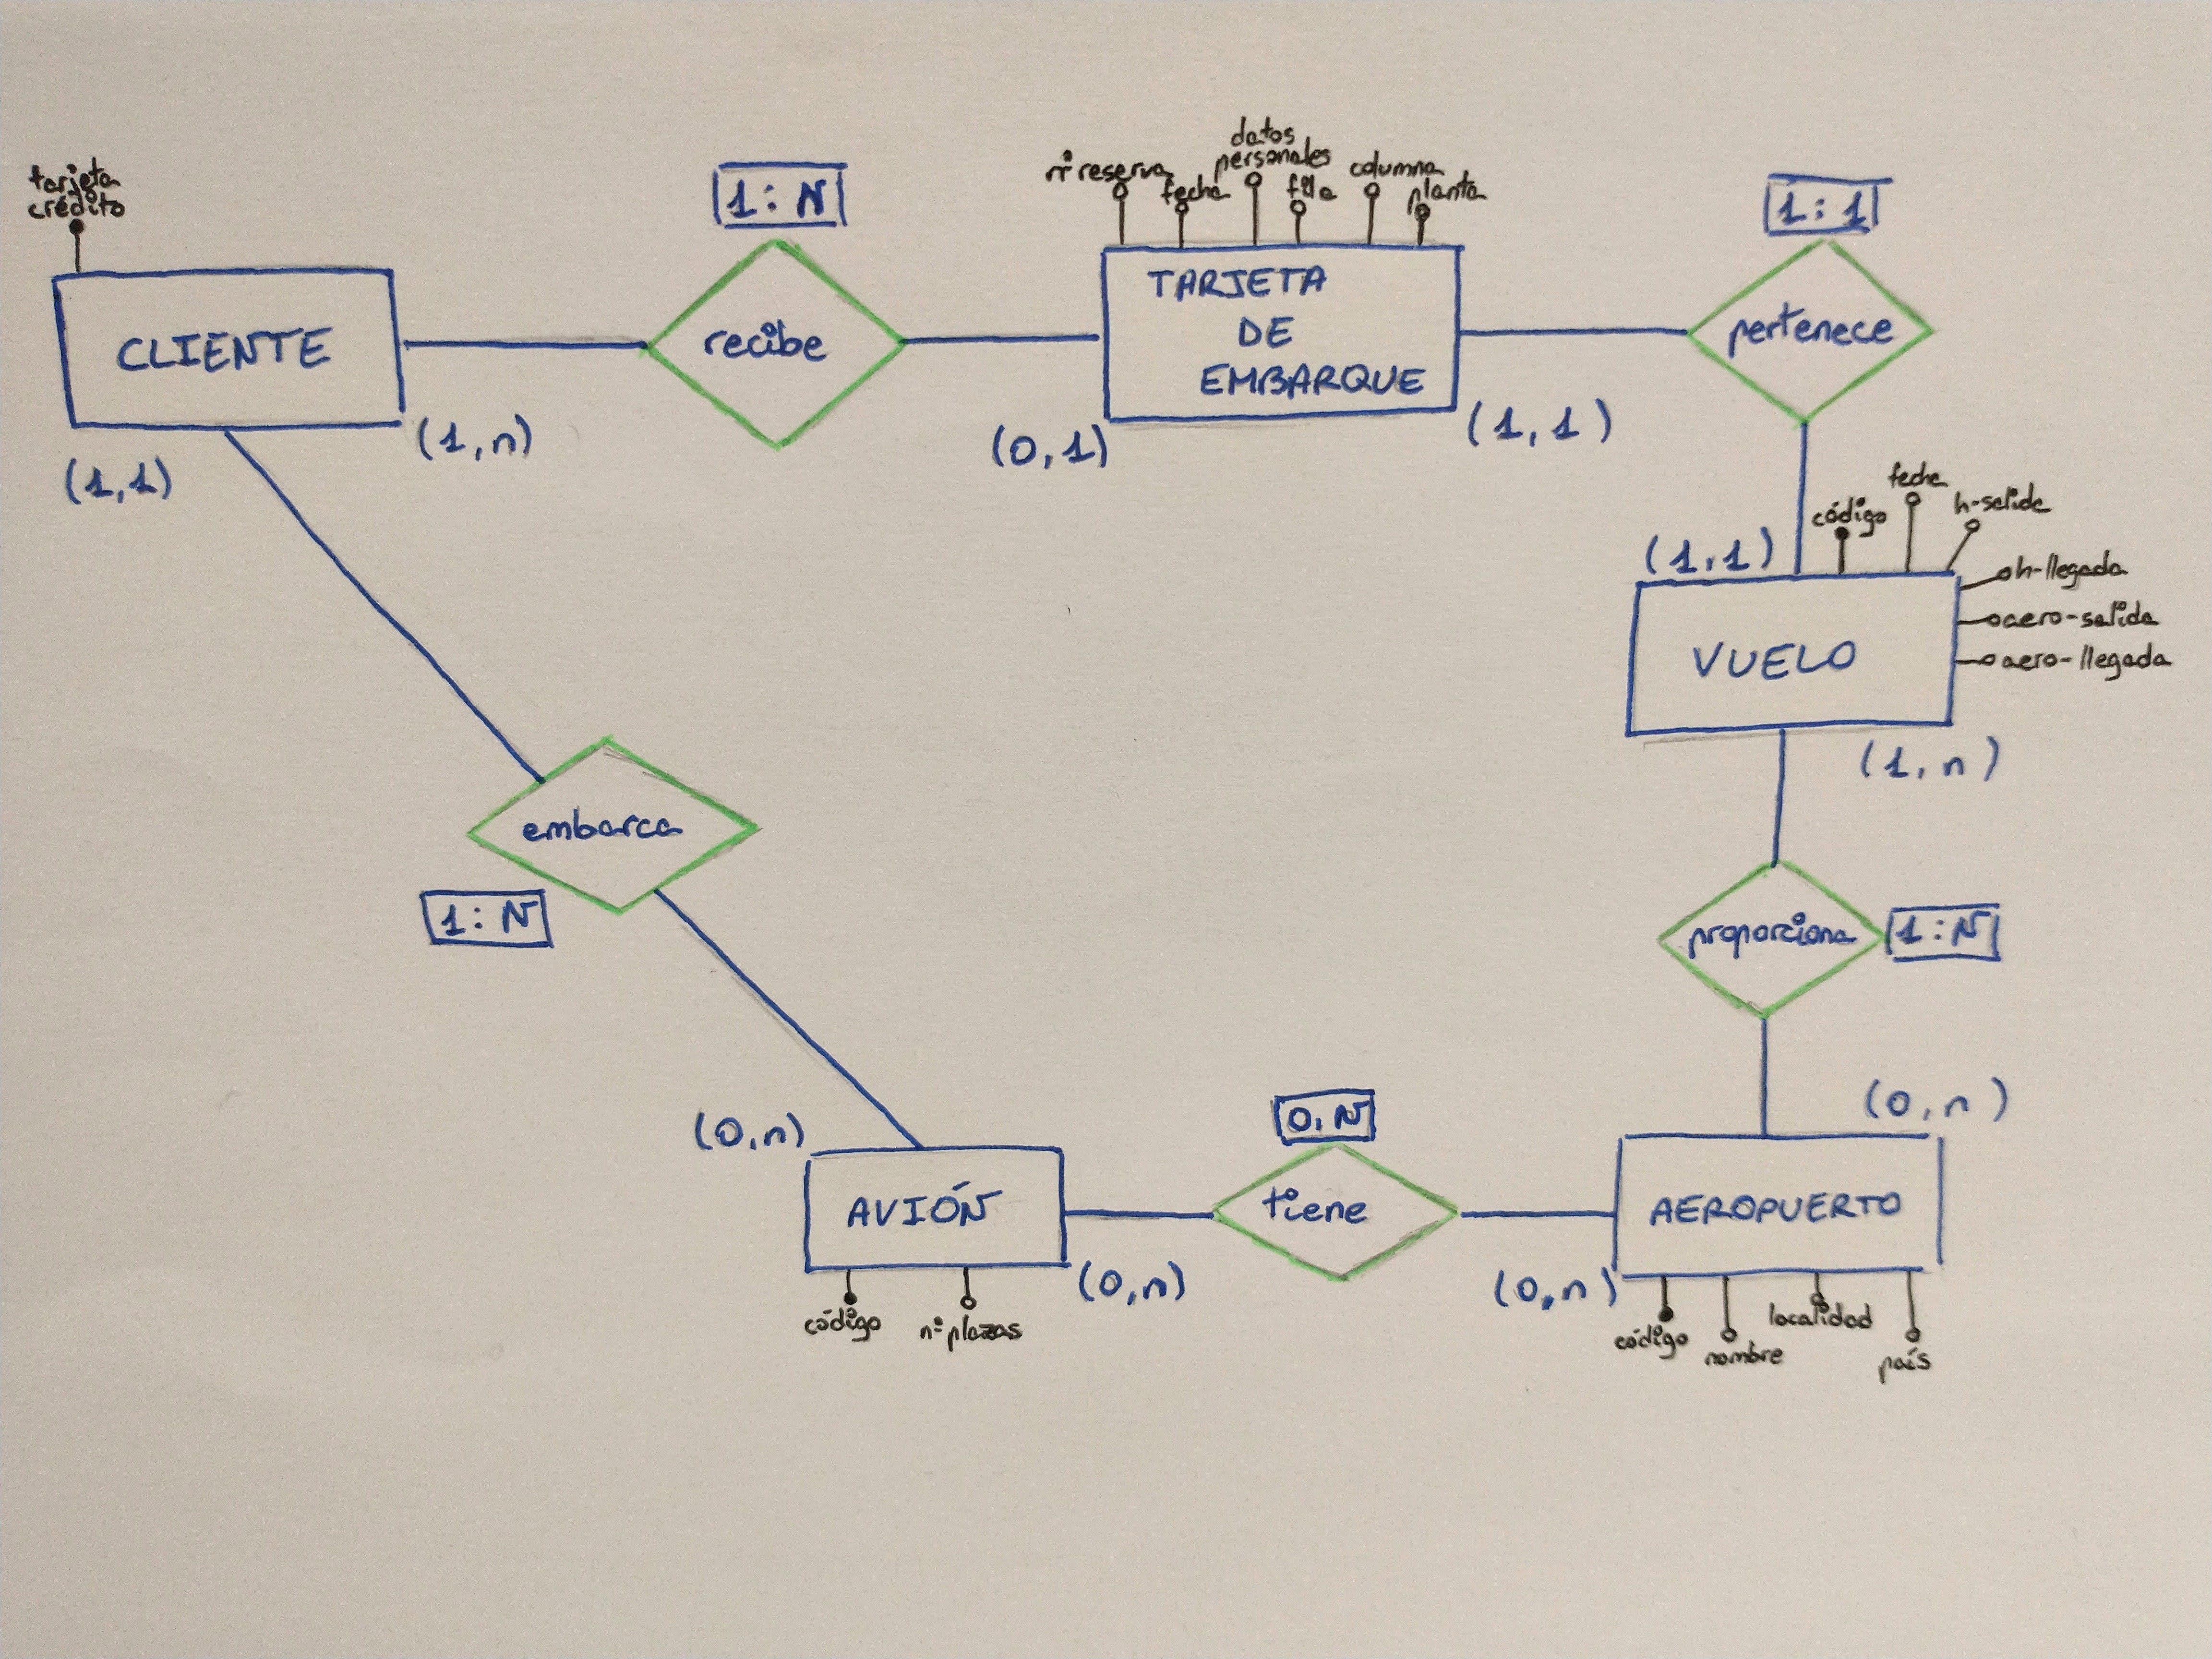 tarjeta
crédito
CLIENTE
(1,1)
(1,n)
1:N
recibe
(0,1)
nº reserva
fecha
datos
personales
fila
columna
planta
TARJETA
DE
EMBARQUE
(1,1)
1:1
pertenece
(1,1)
código
fecha
h-salida
h-llegada
aero-salida
aero-llegada
VUELO
(1,n)
embarca
1:N
proporciona
1:N
(0,n)
AVIÓN
(0,n)
código
nº plazas
0,N
tiene
(0,n)
AEROPUERTO
(0,n)
código
nombre
localidad
país